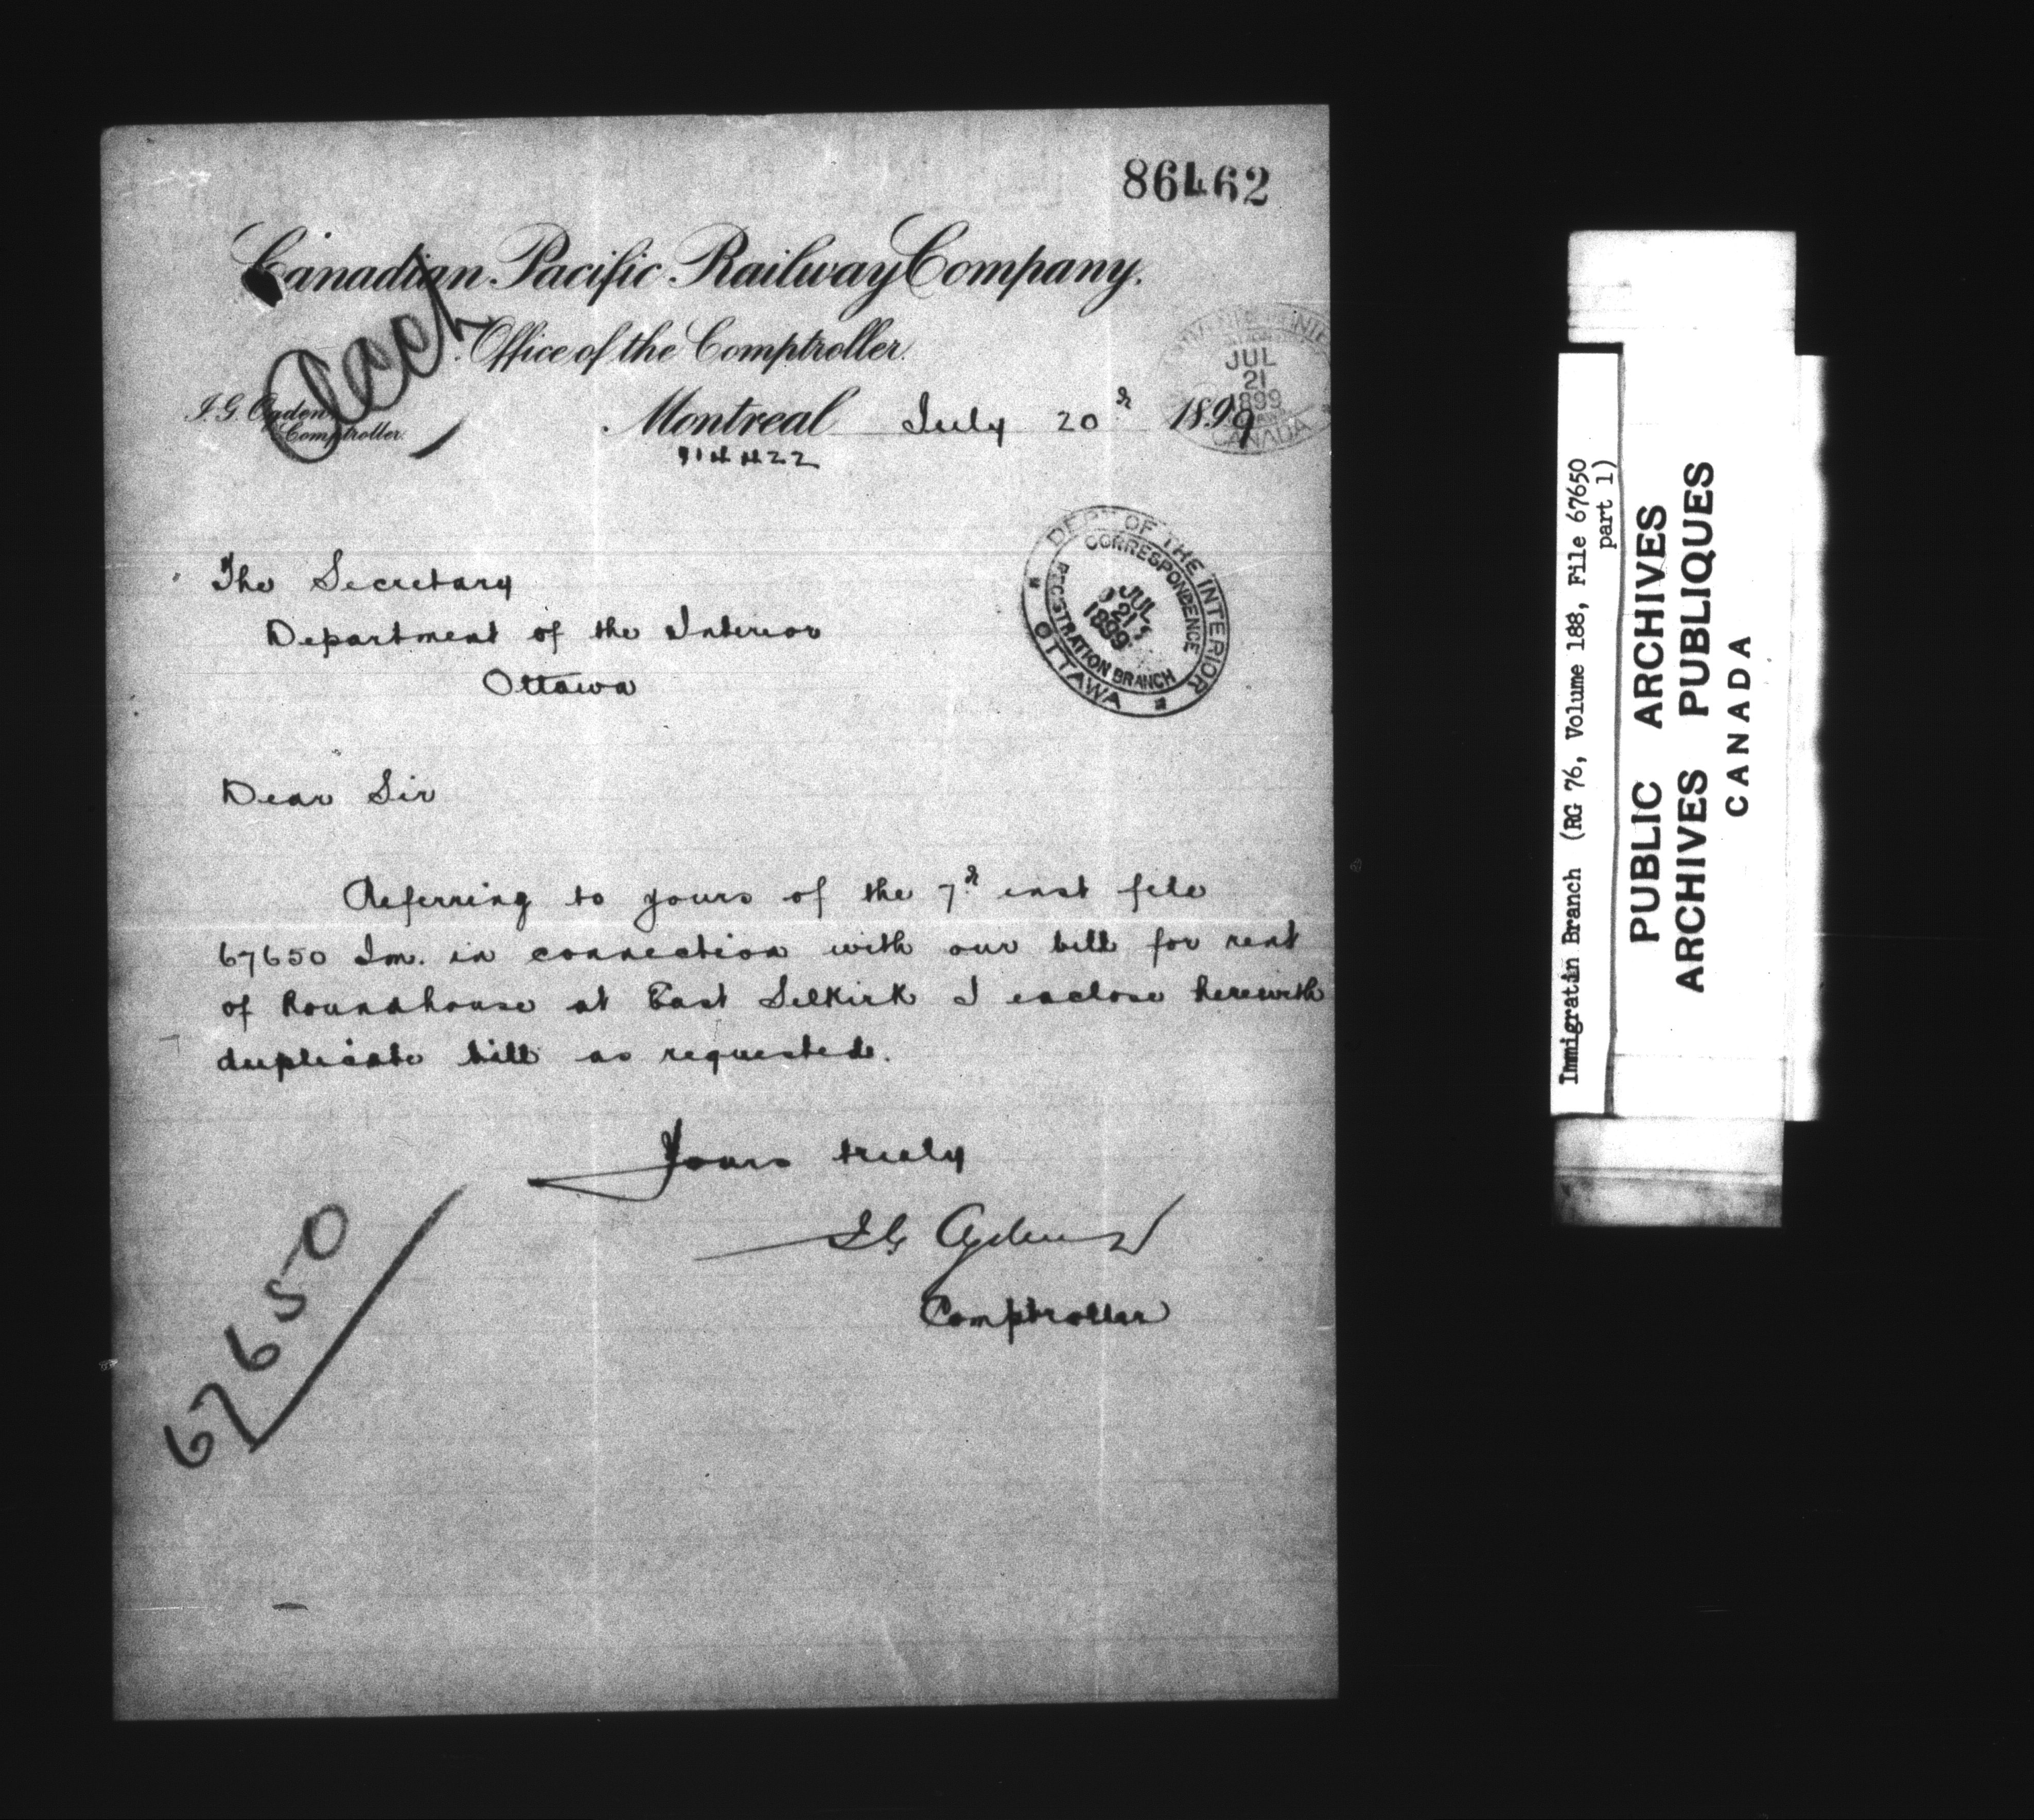 86462
Canadian Pacific Railway Company.
Office of the Comptroller.
I. G. Ogden,
Comptroller.
Montreal July 20th 1899
JUL
21
1899
CANADA
The Secretary
Department of the Interior
Ottawa
DEPT OF THE INTERIOR
CORRESPONDENCE
REGISTRATION BRANCH
JUL
21
1899
OTTAWA
Dear Sir
Referring to yours of the 7th inst file
67650 Im. in connection with our bill for rent
of Roundhouse at East Selkirk I enclose herewith
duplicate bill as requested.
Yours truly
I G Ogden
Comptroller
67650
Immigratin Branch (RG 76, Volume 188, File 67650
part 1)
PUBLIC ARCHIVES
ARCHIVES PUBLIQUES
CANADA